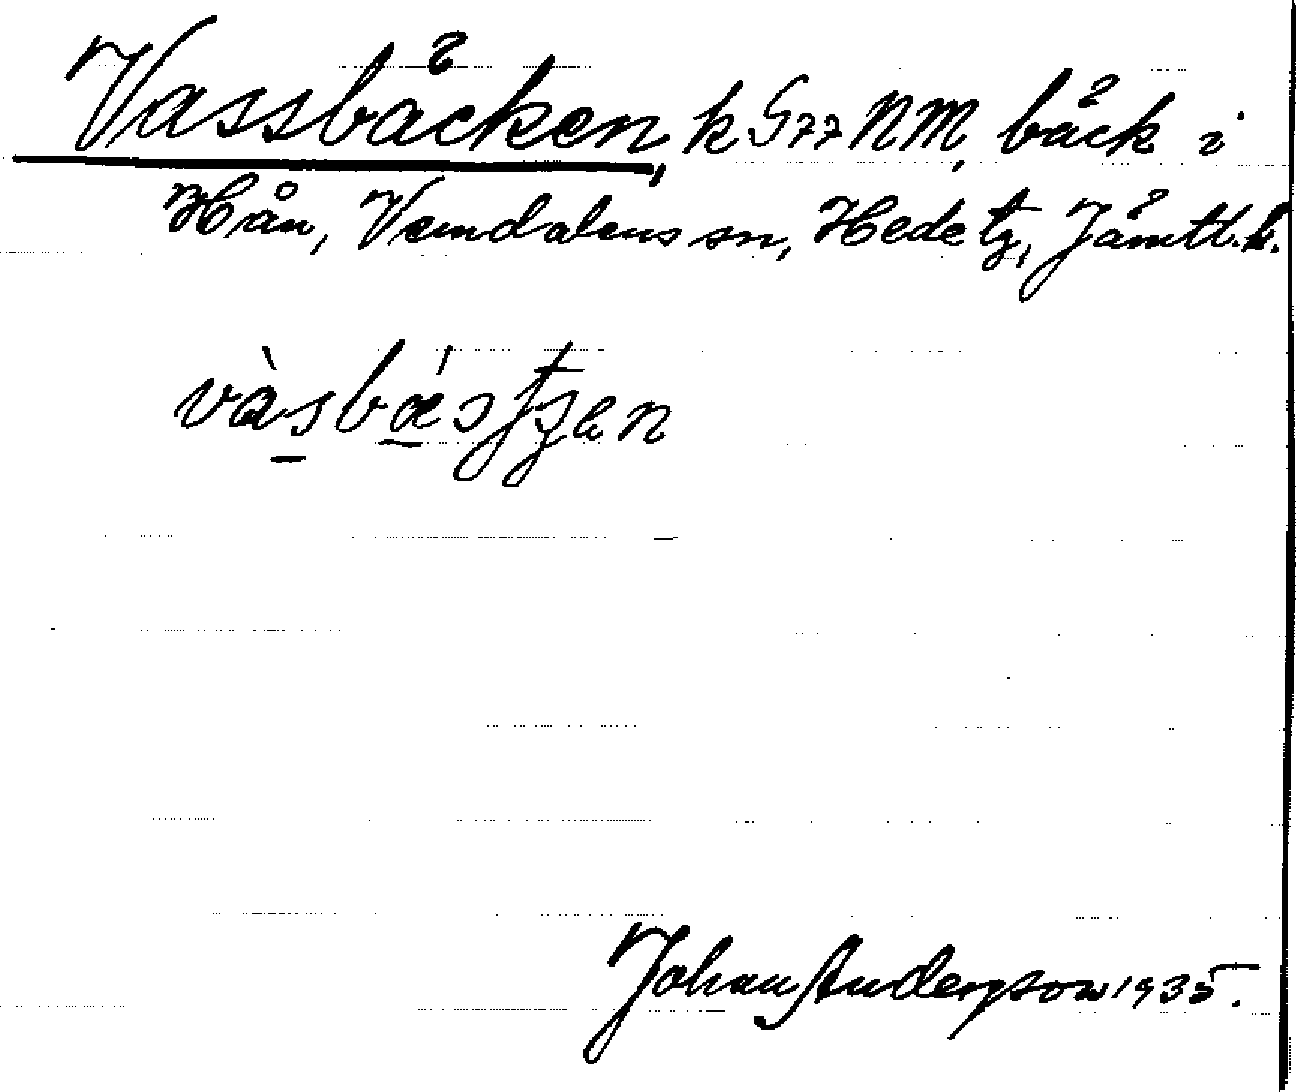 Vassbäcken, k G77 NM, bäck i
Hån, Vemdalens sn, Hede tg, Jämtl. l.
Johan Anderson 1935.